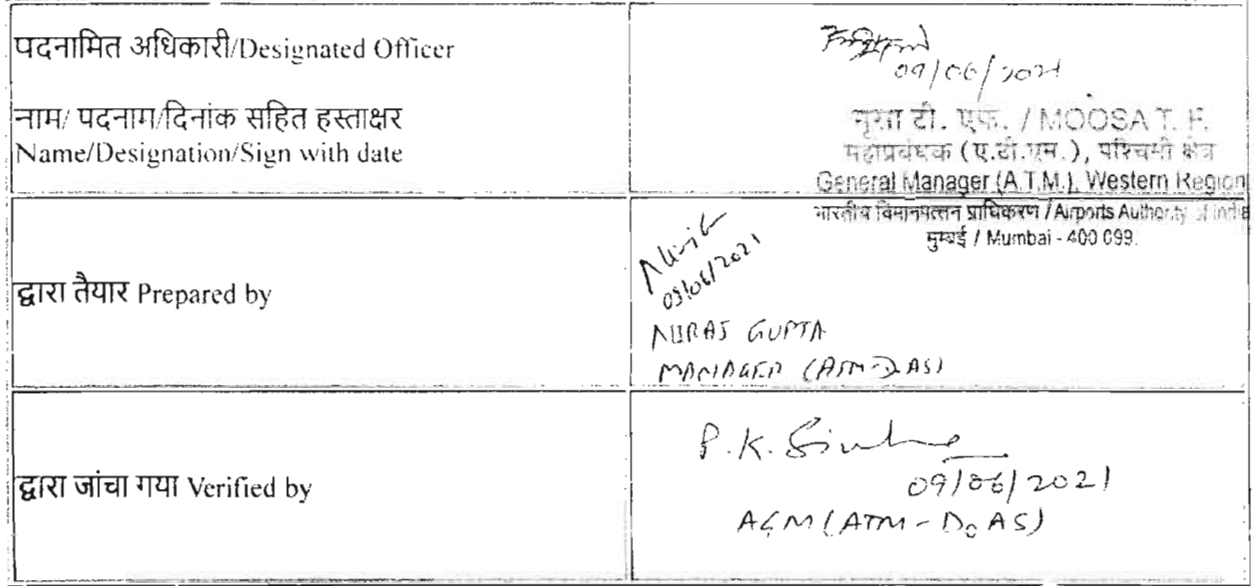 पदनामित अधिकारी/Designated Officer
नाम/ पदनाम/दिनांक सहित हस्ताक्षर
Name/Designation/Sign with date
09/06/2021
मूसा टी. एफ. / MOOSA T. F.
महाप्रबंधक (ए.टी.एम.), पश्चिमी क्षेत्र
General Manager (A.T.M.), Western Region
भारतीय विमानपत्तन प्राधिकरण / Airports Authority of India
मुम्बई / Mumbai - 400 099.
द्वारा तैयार Prepared by
09/06/2021
NIRAJ GUPTA
MANAGER (ATM-DoAS)
द्वारा जांचा गया Verified by
P.K. Sinha
09/06/2021
AGM (ATM - DoAS)